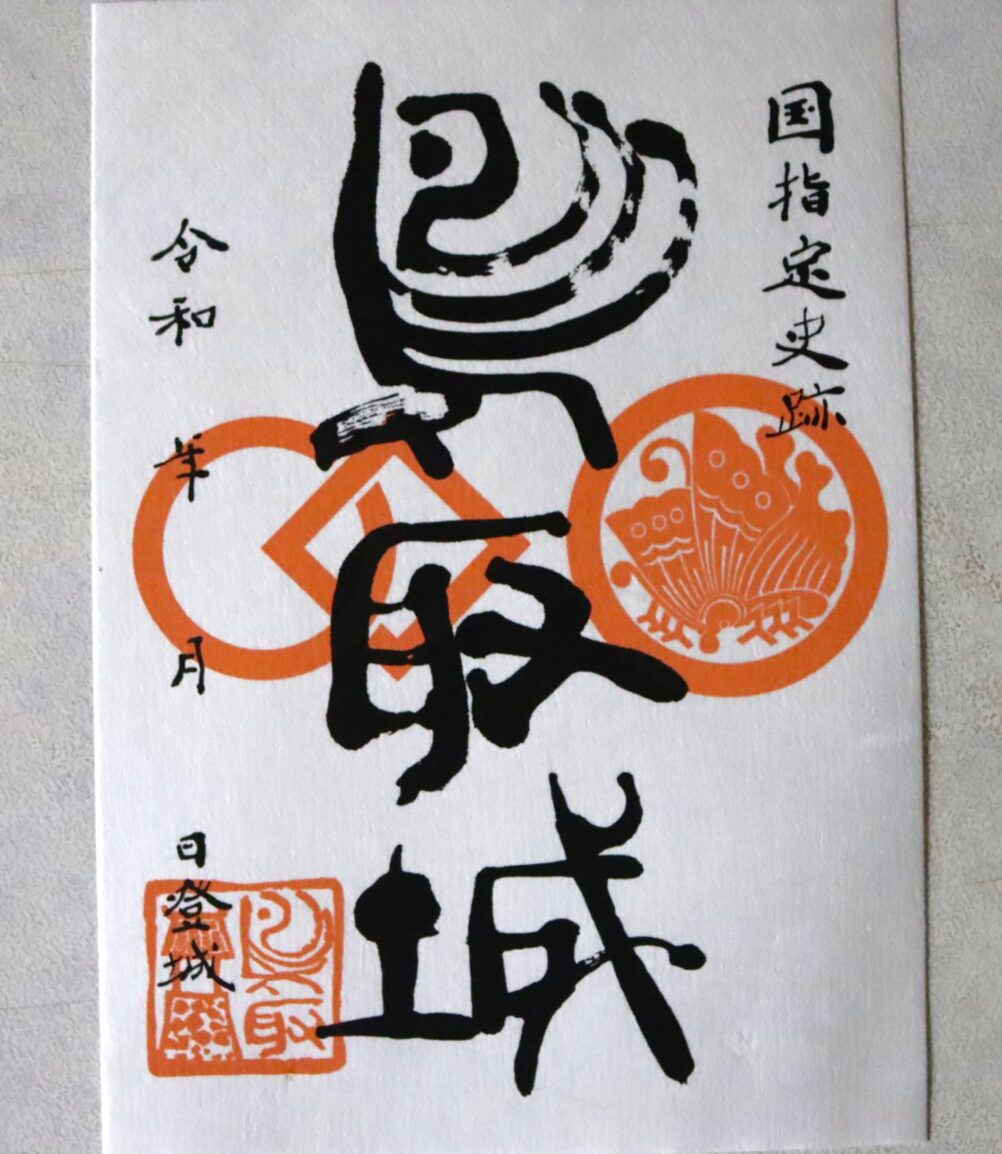 国指定史跡
鳥取城
令和 年 月 日登城
鳥取